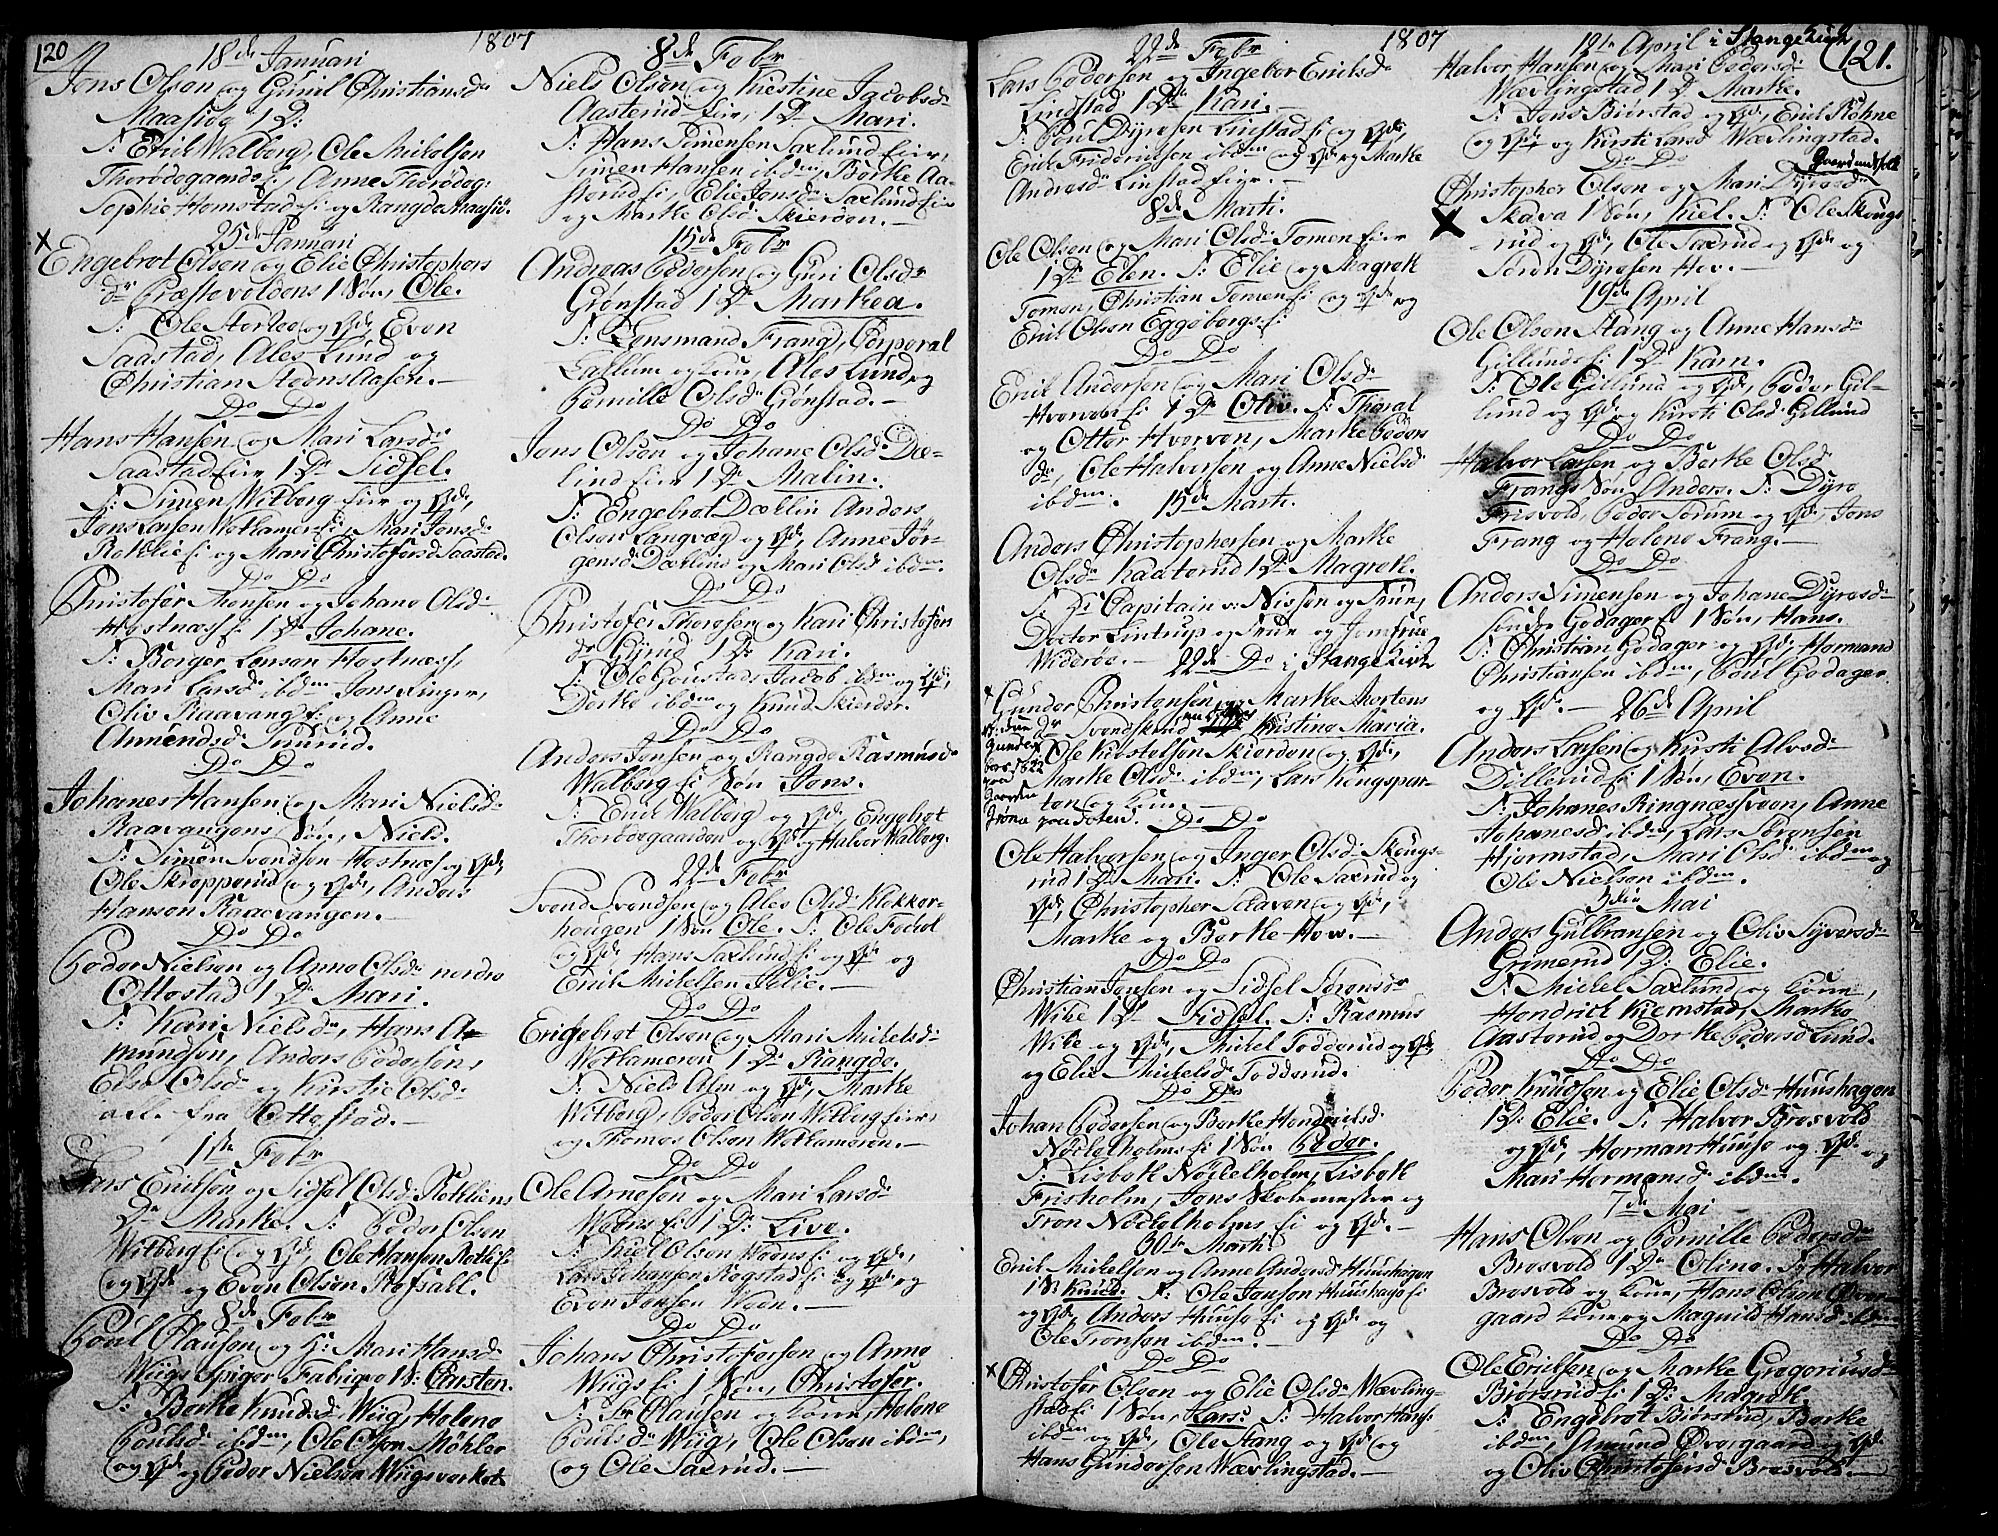 120
1807
18de Januari
Jens Olsen og Gunil Christiansdr
Maasiøe 1 D:
T: Erik Walberg, Ole Mikelsen
Thorødegaards Ei, Anne Thorødeg:
Sophie Homstad Ei og Rangde Maasiø.
25de Januari
x Engebret Olsen og Elie Christophers
dr Præstevoldens 1 Søn, Ole.
T: Ole Storløe og Qde, Even
Saastad, Ales Lund og
Christian Steens Aasen.
Do Do
Hans Hansen og Mari Larsdr
Saastad Eier 1 Dr Sidsel.
T: Simen Witberg Eier og Qde,
Jens Larsen Wetlameren Ei, Mari Jensdr
Røkelie Ei og Mari Christofersd Saastad.
Do Do
Christofer Monsen og Johane Olsd:
Hostnæss Ei 1 Dr Johane.
T: Børger Larsen Hostnæss,
Mari Larsdr ibdm Jens Linger,
Oliv Raavang Ei og Anne
Amundsdr Tuurud.
Do Do
Johanes Hansen og Mari Nielsdr
Raavangens 1 Søn, Niels.
T: Simen Svendsen Hostnæs og Qde,
Ole Skrepperud og Qde, Anders
Hansen Raavangen.
Do Do
Peder Nielsen og Anne Olsdr nordre
Ottestad 1 Dr Mari.
T: Kari Nielsdr, Hans A
mundsen, Anders Pedersen,
Else Olsdr og Kirstie Olsd:
alle fra Ottestad.
1ste Febr
Lars Eriksen og Sidsel Olsd: Røkliens
Dr Marte. T: Peder Olsen
Witberg Ei og Qde, Ole Hansen Røtlie Ei
og Qde og Even Olsen Hofsall.
8de Febr
Poul Clausen og H: Mari Hansdr
Wiigs Spiger Fabrique 1 S: Carsten.
T: Berte Knudsdr Wiig, Helene
Poulsdr ibdm, Ole Olsen Møhler
og Qde og Peder Nielsen Wiigsverket.
8de Febr
Niels Olsen og Kiestine Jacobsd
Aasterud Eier, 1 Dr Mari.
T: Hans Simensen Saxlund Eier,
Simen Hansen ibdm, Berte Aa-
sterud Ei, Elie Jensdr Saxlund Eier
og Marte Olsdr Skierden.
15de Febr
Andreas Pedersen og Guri Olsdr
Grønstad 1 Dr Marthea.
T: Lensmand Frang, Corporal
Lallum og Kone, Ales Lund og
Pernille Olsdr Grønstad.
Do Do
Jens Olsen og Johane Olsd: Dæ-
lind Eier 1 Dr Malin.
T: Engebret Dæhlin Anders
Olsen Langvæg og Qde, Anne Jør-
gensd Dæhlins og Mari Olsd ibdm.
Do Do
Christofer Thoresen og Kari Christofers
dr Gijrud 1 Dr Kari.
T: Ole Gaustad, Jacob ibdm og Qde,
Dorthe ibdm og Knud Skierden.
Do Do
Anders Jensen og Rangde Rasmusdr
Walberg Ei 1 Søn Jens.
T: Erik Walberg og Qde, Engebret
Thorødegaarden og Qde og Halvor Walberg.
22de Febr
Svend Svendsen og Ales Olsd: Klokker-
hougen 1 Søn Ole. T: Ole Fodvol
og Qde Hans Saxlund Ei og Qde og
Erik Mikelsen Jelie.
Do Do
Engebret Olsen og Mari Mikelsd:
Wetlameren 1 Dr Rangde.
T: Niels Alm og Qde, Marte
Witberg, Peder Olsen Witberg Eier
og Thomas Olsen Wetlameren.
Do Do
Ole Arnesen og Mari Larsdr
Weens Ei 1 D: Live.
T: Juel Olsen Weens Ei og Qde,
Lars Johansen Rogstad Ei og Qde og
Even Jensen Ween.
Do Do
Johans Christofersen og Anne
Wiigs Ei 1 Søn, Christofer.
T: Sr Clausen og Kone, Helene
Poulsdr Wiig, Ole Olsen ibdm,
og Ole Saxrud.
22de Febr
1807
Lars Pedersen og Ingebor Eriksdr
Lindstad 1 Dr Kari.
T: Poul Dyresen Linstad Ei og Qde,
Erik Frideriksen ibdm og Qde og Marte
Andersdr Linstad Eier.
8de Marti
Ole Olsen og Mari Olsd: Tomen Eier
1 Dr Elen. T: Elie og Magrete
Tomen, Christian Tomen Ei og Qde og
Erik Olsen Eggebergs Ei
Do Do
Erik Andersen og Mari Olsdr
Hverven Ei 1 Dr Oliv. T: Tharal
og Otter Hverven, Marte Peders
dr, Ole Halversen og Anne Nielsd
ibdm.
15de Marti.
Anders Christophersen og Marte
Olsdr Kaaterud 1 Dr Magrete.
T: Hr Capitain v: Nissen og Frue,
Doctor Lintrup og Frue og Jomfrue
Widerøe.
22de Do i Stange Kirke
x Gunder Christensen og Marte Mortens
dr Svendskrud Kristine Maria.
Ole Kirstelsen Skierden og Qde,
Marte Olsdr ibdm, Lars Kongspar-
ten og Kone.
paa Toten.
Do Do
Ole Halvorsen og Inger Olsd: Skougs-
rud 1 Dr Mari. T: Ole Saxrud og
Qde, Christopher Skaven og Qde,
Marte og Berte Hov.
Do Do
Christian Jensen og Sidsel Sørensdr
Wike 1 Dr Sidsel. T: Rasmus
Wike og Qde, Mikel Todderud og Qde,
og Elie Mikelsdr Todderud.
Do Do
Johan Pedersen og Berte Hendriksdr
Nøckelholms Ei 1 Søn Peder.
T: Lisbeth Nøckelholm, Lisbeth
Frisholm, Jens Skolemester og
Tron Nøckelholms Ei og Qde.
30te Marti.
Erik Mikelsen og Anne Andersd Huushagen
1 S: Knud. T: Ole Jensen Huushage Ei
og Qde, Anders Huuse Ei og Qde og
Ole Tronsen ibdm.
Do Do
x Christofer Olsen og Elie Olsdr Wævling-
stad Ei 1 Søn, Lars. T: Halvor Hans:
ibdm og Qde, Ole Stang og Qde og
Hans Gundersen Wævlingstad.
12te April i Stange Kirk
121.
Halvor Hansen og Mari Pedersd
Wævlingstad 1 D: Marte.
T: Jens Biørstad og Qde, Erik Røhne
og Qde og Kirsti Larsd Wævlingstad.
Do Do
Christopher Olsen og Mari Dyresdr
Skava 1 Søn, Juel. T: Ole Skougs-
rud og Qde, Ole Saxrud og Qde og
Søren Dyresen Hov.
19de April
Ole Olsen Stang og Anne Hansdr
Gillunds Ei 1 Dr Karn.
T: Ole Gillund og Qde, Peder Gil-
lund og Qde og Kirsti Olsd: Gillund
Do Do
Halvor Larsen og Berte Olsd
Frang 1 Søn Anders. T: Dyre
Frisvold, Peder Sørum og Qde, Jens
Frang og Helene Frang.
Do Do
Anders Simensen og Johane Dyresdr
søndre Godager Ei 1 Søn, Hans.
T: Christian Godager og Qde, Hermand
Christiansen ibdm, Poul Godager
og Qde.
26de April
Anders Larsen og Kirsti Alvsdr
Dillerud Ei 1 Søn, Even.
T: Johanes Ringnæssveen, Anne
Johanesdr ibdm, Lars Sørensen
Hjermstad, Mari Olsdr ibdm og
Ole Nielsen ibdm.
3die Mai
Anders Gulbransen og Oliv Syversdr
Grimerud 1 D: Elie.
T: Mickel Saxlund og Kone,
Hendrick Kiemstad, Marte
Aasterud og Dorthe Pedersd Lund.
Do Do
Peder Knudsen og Elie Olsdr Huushagen
1 D: Elie. T: Halvor Brosvold
og Qde, Herman Huuse og Qde og
Mari Hermansd ibdm.
7de Mai
Hans Olsen og Pernille Pedersdr
Brosvold 1 Dr Oline. T: Halvor
Brosvold og Kone, Hans Olsen Øver-
gaard Kone og Magnild Hansd ibdm
Do Do
Ole Ericksen og Marte Gregoriusdr
Biørsrud Ei 1 Dr Magrete
T: Engebret Biørsrud, Berte
ibdm, Amund Øvergaard og Qde
og Oliv Christofersdr Brosvold.